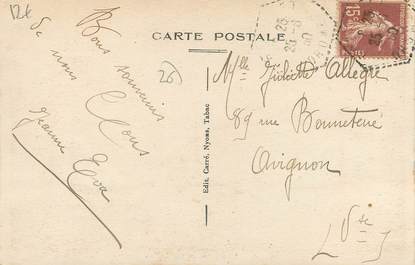 12€
CARTE POSTALE
Bons souvenirs
de nous
tous
Jeanne Eva
26
Edit. Carré, Nyons, Tabac
Mlle Juliette Allègre
89 rue Bonneterie
Avignon
(Vse)
15c